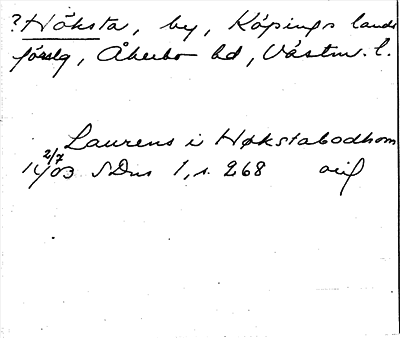 ?Höksta, by, Köpings lands
förslg, Åkerbo hd, Västm. l.
Laurens i Høkstabodhom
2/7
1403 SDns 1, s. 268 orig